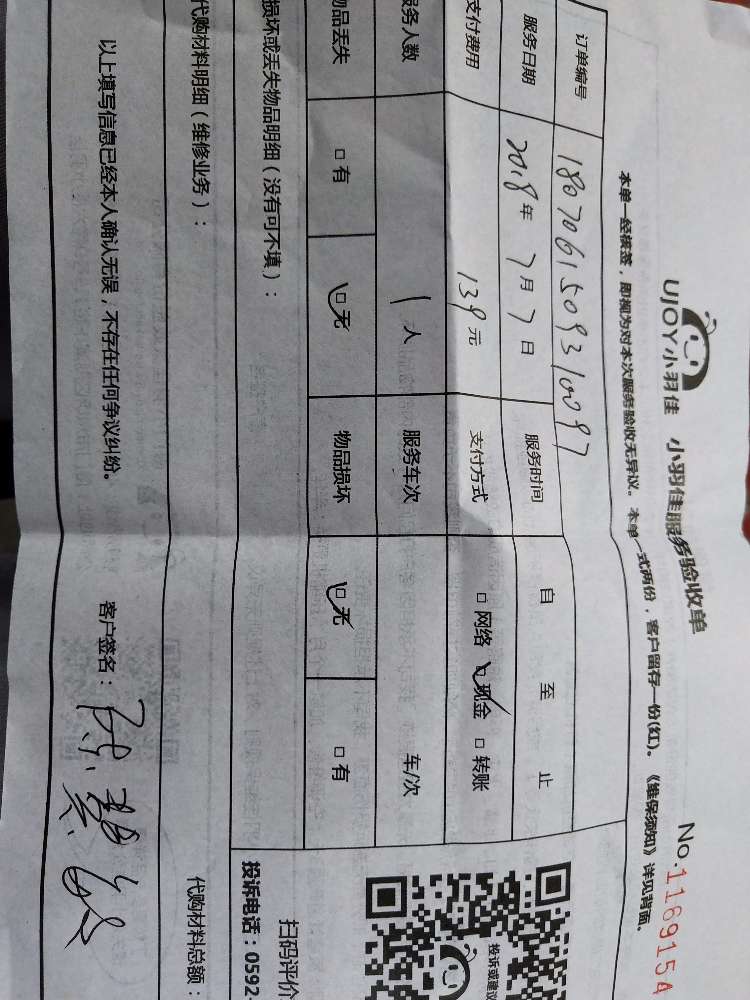 UJOY小羽佳 小羽佳服务验收单 No.1169154
本单一经核签，即视为对本次服务验收无异议。本单一式两份，客户留存一份(红)。《维保须知》详见背面。
订单编号 1807061509310097
服务日期 2018年7月7日 服务时间 自 至 止
支付费用 139元 支付方式 □网络 ☑现金 □转账
服务人数 1人 服务车次 车/次
物品丢失 □有 ☑无 物品损坏 ☑无 □有
损坏或丢失物品明细（没有可不填）：
代购材料明细（维修业务）： 代购材料总额：
投诉或建议
扫码评价
投诉电话：0592-
以上填写信息已经本人确认无误，不存在任何争议纠纷。 客户签名：